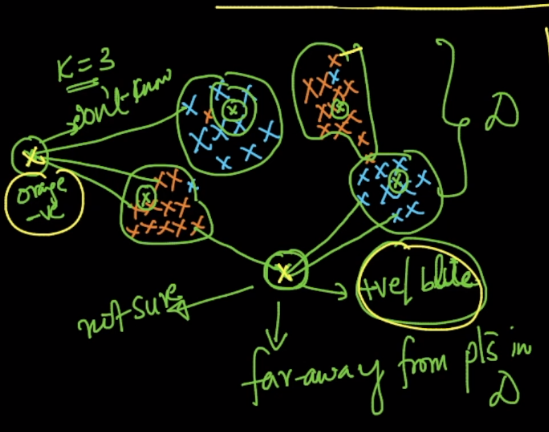 K=3
don't know
D
orange
-ve
not sure
+ve/blue
far-away from pts in
D